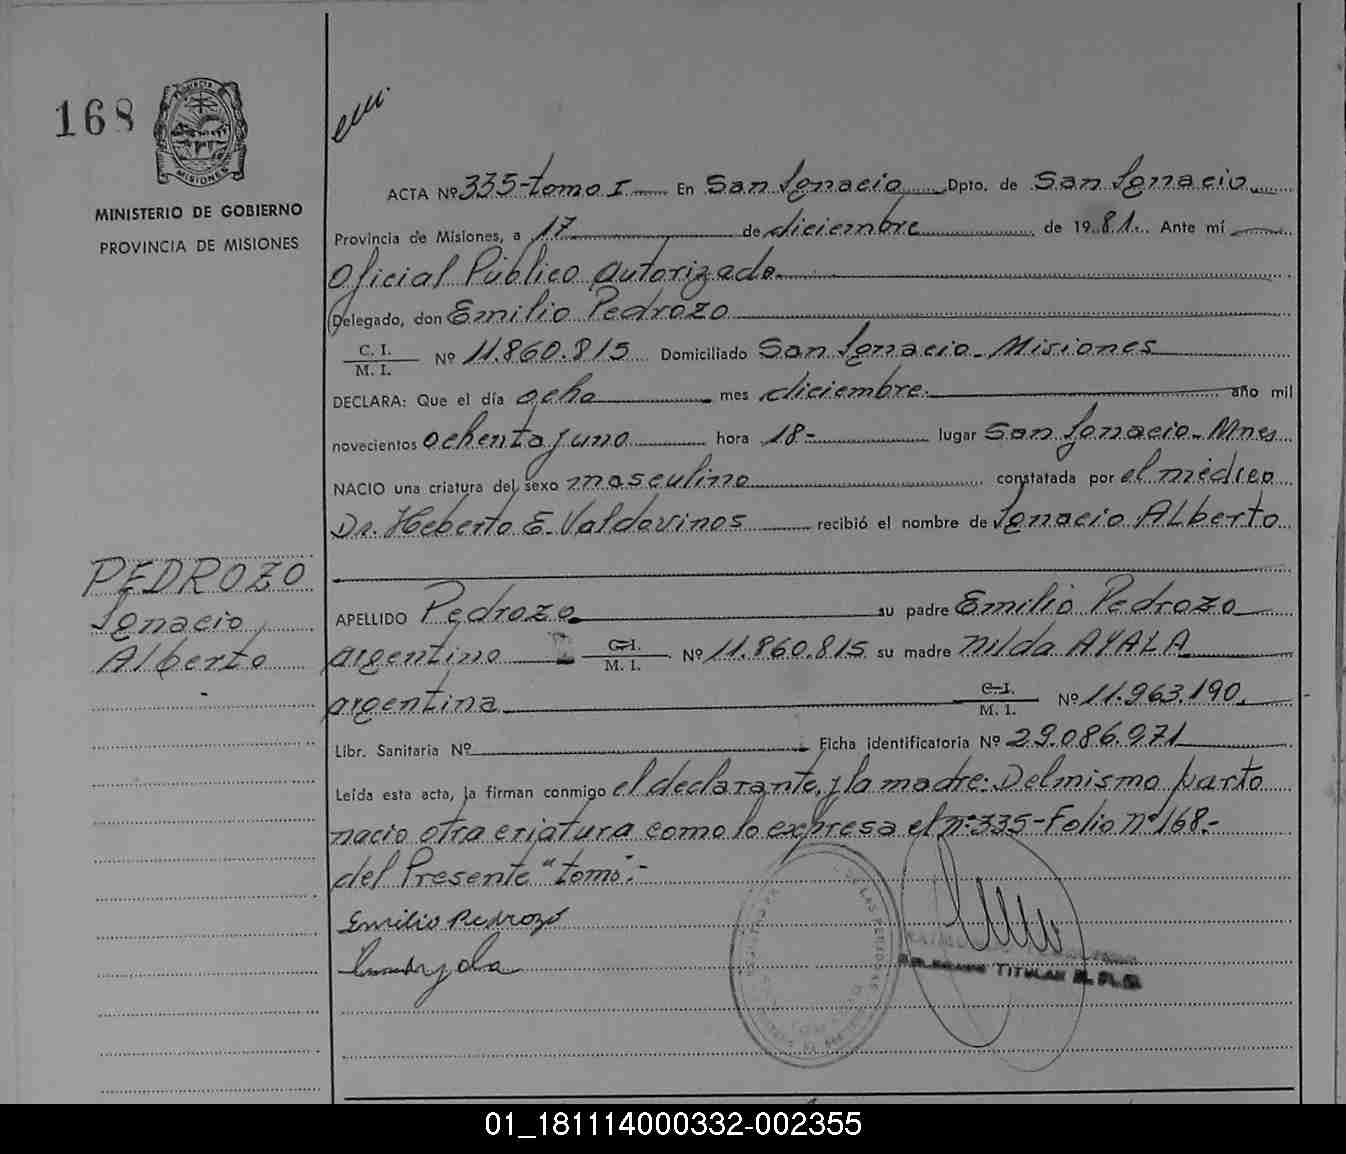 168
MINISTERIO DE GOBIERNO
PROVINCIA DE MISIONES
PROVINCIA
MISIONES
ACTA Nº 335-tomo I En San Ignacio Dpto. de San Ignacio
Provincia de Misiones, a 17 de diciembre de 1981. Ante mí
Oficial Público Autorizado
Delegado, don Emilio Pedrozo
C. I.
M. I. Nº 11.860.815 Domiciliado San Ignacio - Misiones
DECLARA: Que el día ocho mes diciembre año mil
novecientos ochenta y uno hora 18- lugar San Ignacio - Mnes
NACIO una criatura del sexo masculino constatada por el médico
Dr. Heberto E. Valdovinos recibió el nombre de Ignacio Alberto
PEDROZO
Ignacio
Alberto
APELLIDO Pedrozo su padre Emilio Pedrozo
argentino C. I.
M. I. Nº 11.860.815 su madre Nilda AYALA
argentina C. I.
M. I. Nº 11.963.190.
Libr. Sanitaria Nº Ficha identificatoria Nº 29.086.971
Leída esta acta, la firman conmigo el declarante, y la madre: Del mismo parto
nacio otra criatura como lo expresa el nº 335-Folio nº 168.-
del Presente "tomo".-
Emilio Pedrozo
DE LAS PERSONAS
TITULAR
01_181114000332-002355